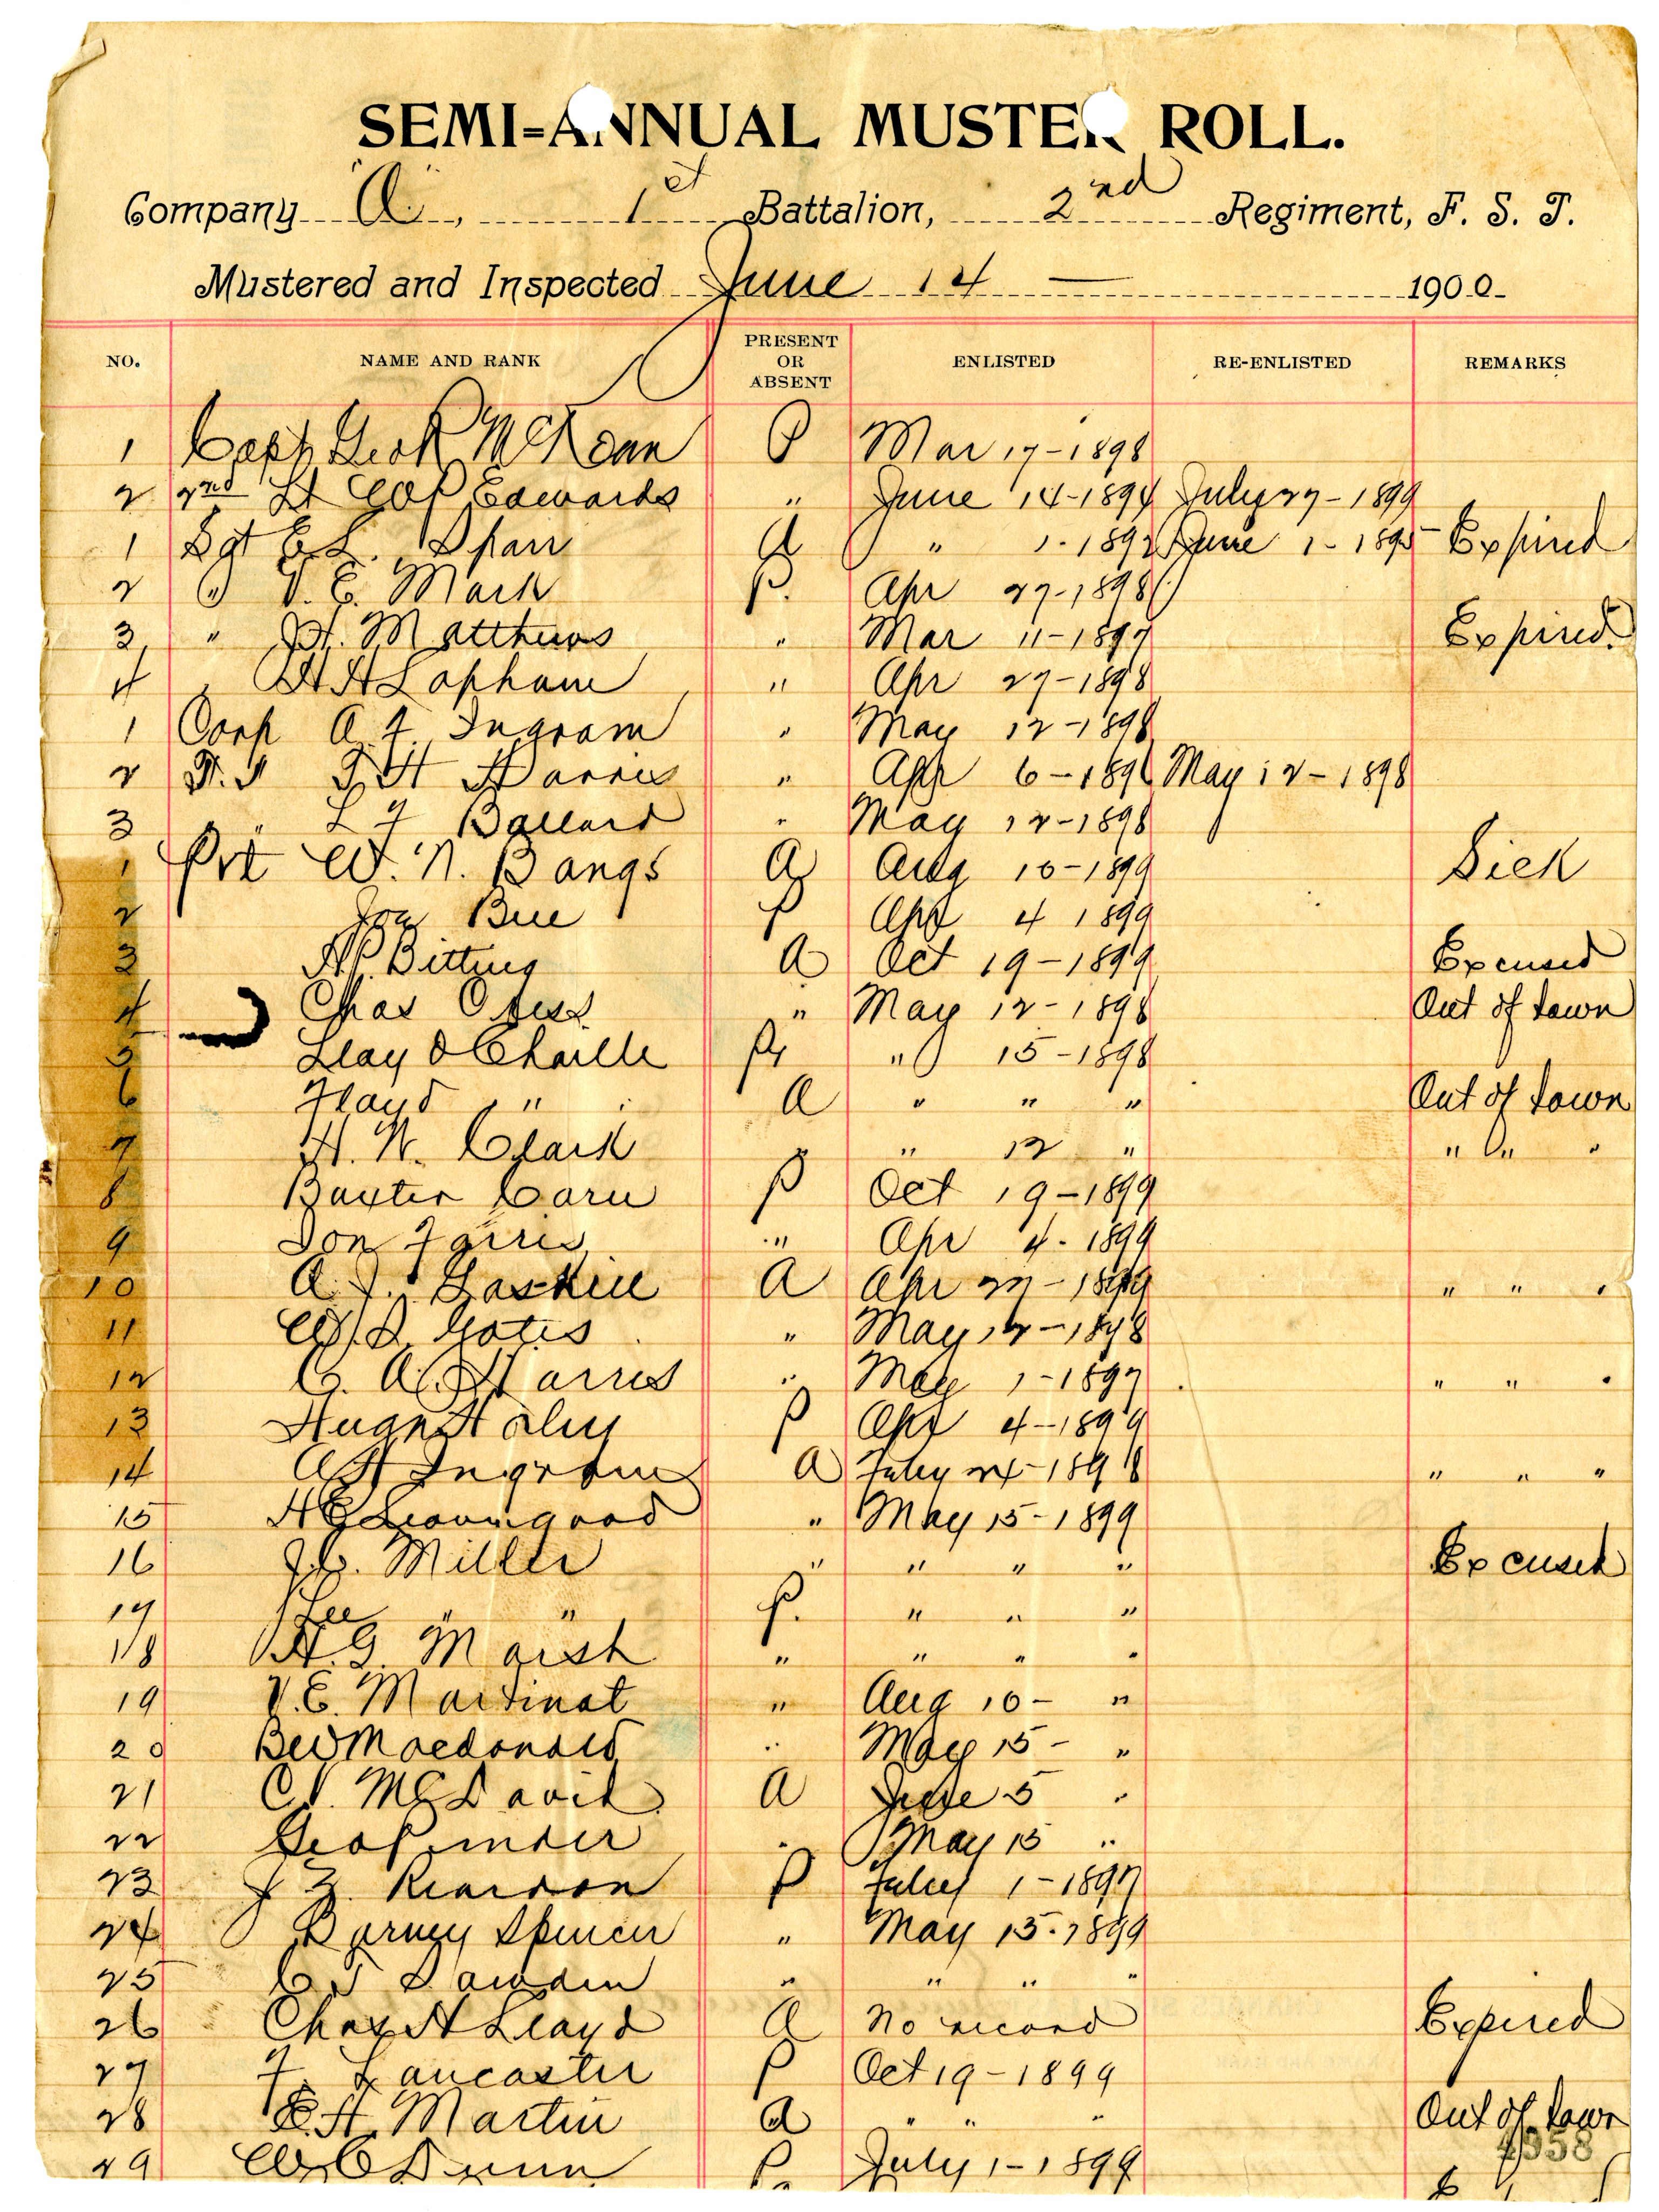 SEMI-ANNUAL MUSTER ROLL.
Company "A", 1st Battalion, 2nd Regiment, F. S. T.
Mustered and Inspected June 14 — 1900
NO. NAME AND RANK PRESENT OR ABSENT ENLISTED RE-ENLISTED REMARKS
1 Capt Geo R McKean P Mar 17-1898
2 2nd Lt Edwards " June 14-1894 July 27-1899
1 Sgt E.L. Sparr A " 1-1892 June 1-1895 Expired
2 " V.E. Mark P. Apr 27-1898
3 " Matthews " Mar 11-1897 Expired
4 " H H Lapham " Apr 27-1898
1 Corp A. F. Ingram " May 12-1898
2 Harris " Apr 6-1891 May 12-1898
3 " L F Ballard " May 12-1898
1 Pvt W. N. Bangs A Aug 10-1899 Sick
2 Joa Bue P Apr 4 1899
3 Bitting A Oct 19-1899 Excused
4 Chas " May 12-1898 Out of town
5 Chaille P " 15-1898
6 Floyd " A " " " Out of town
7 H. W. Clark " " 12 " " " "
8 Baxter Carn P Oct 19-1899
9 Don Farris " Apr 4-1899
10 A. J. Gaskill A Apr 22-1899 " " "
11 Gates " May 12-1898
12 C. A. Harris " May 1-1897 " " "
13 Hugh Haley P Apr 4-1899
14 A H Ingram A July 24-1898 " " "
15 H G Livingood " May 15-1899
16 J.C. Miller " " " " Excused
17 Lee " " P. " " "
18 H.G. Marsh " " " "
19 V.E. Martinat " Aug 10- "
20 B W Macdonald " May 15- "
21 C.V. McDavid A June 5 "
22 Geo Pinder " May 15 "
23 J Z. Reardon P July 1-1897
24 Barney Spencer " May 15-1899
25 C T Dawden " " " "
26 Chas H Lloyd A No record Expired
27 F. Lancaster P Oct 19-1899
28 E.H. Martin A " " " Out of town
4958
29 W C Dunn P. July 1-1899